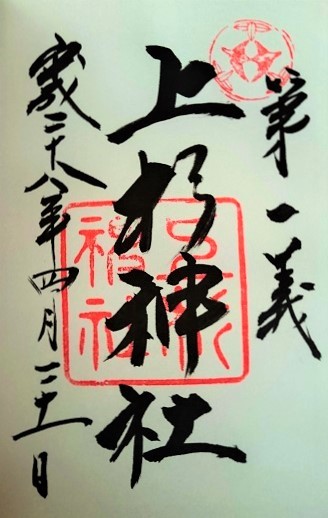 第一義
上杉神社
上杉神社
平成二十八年四月二十一日